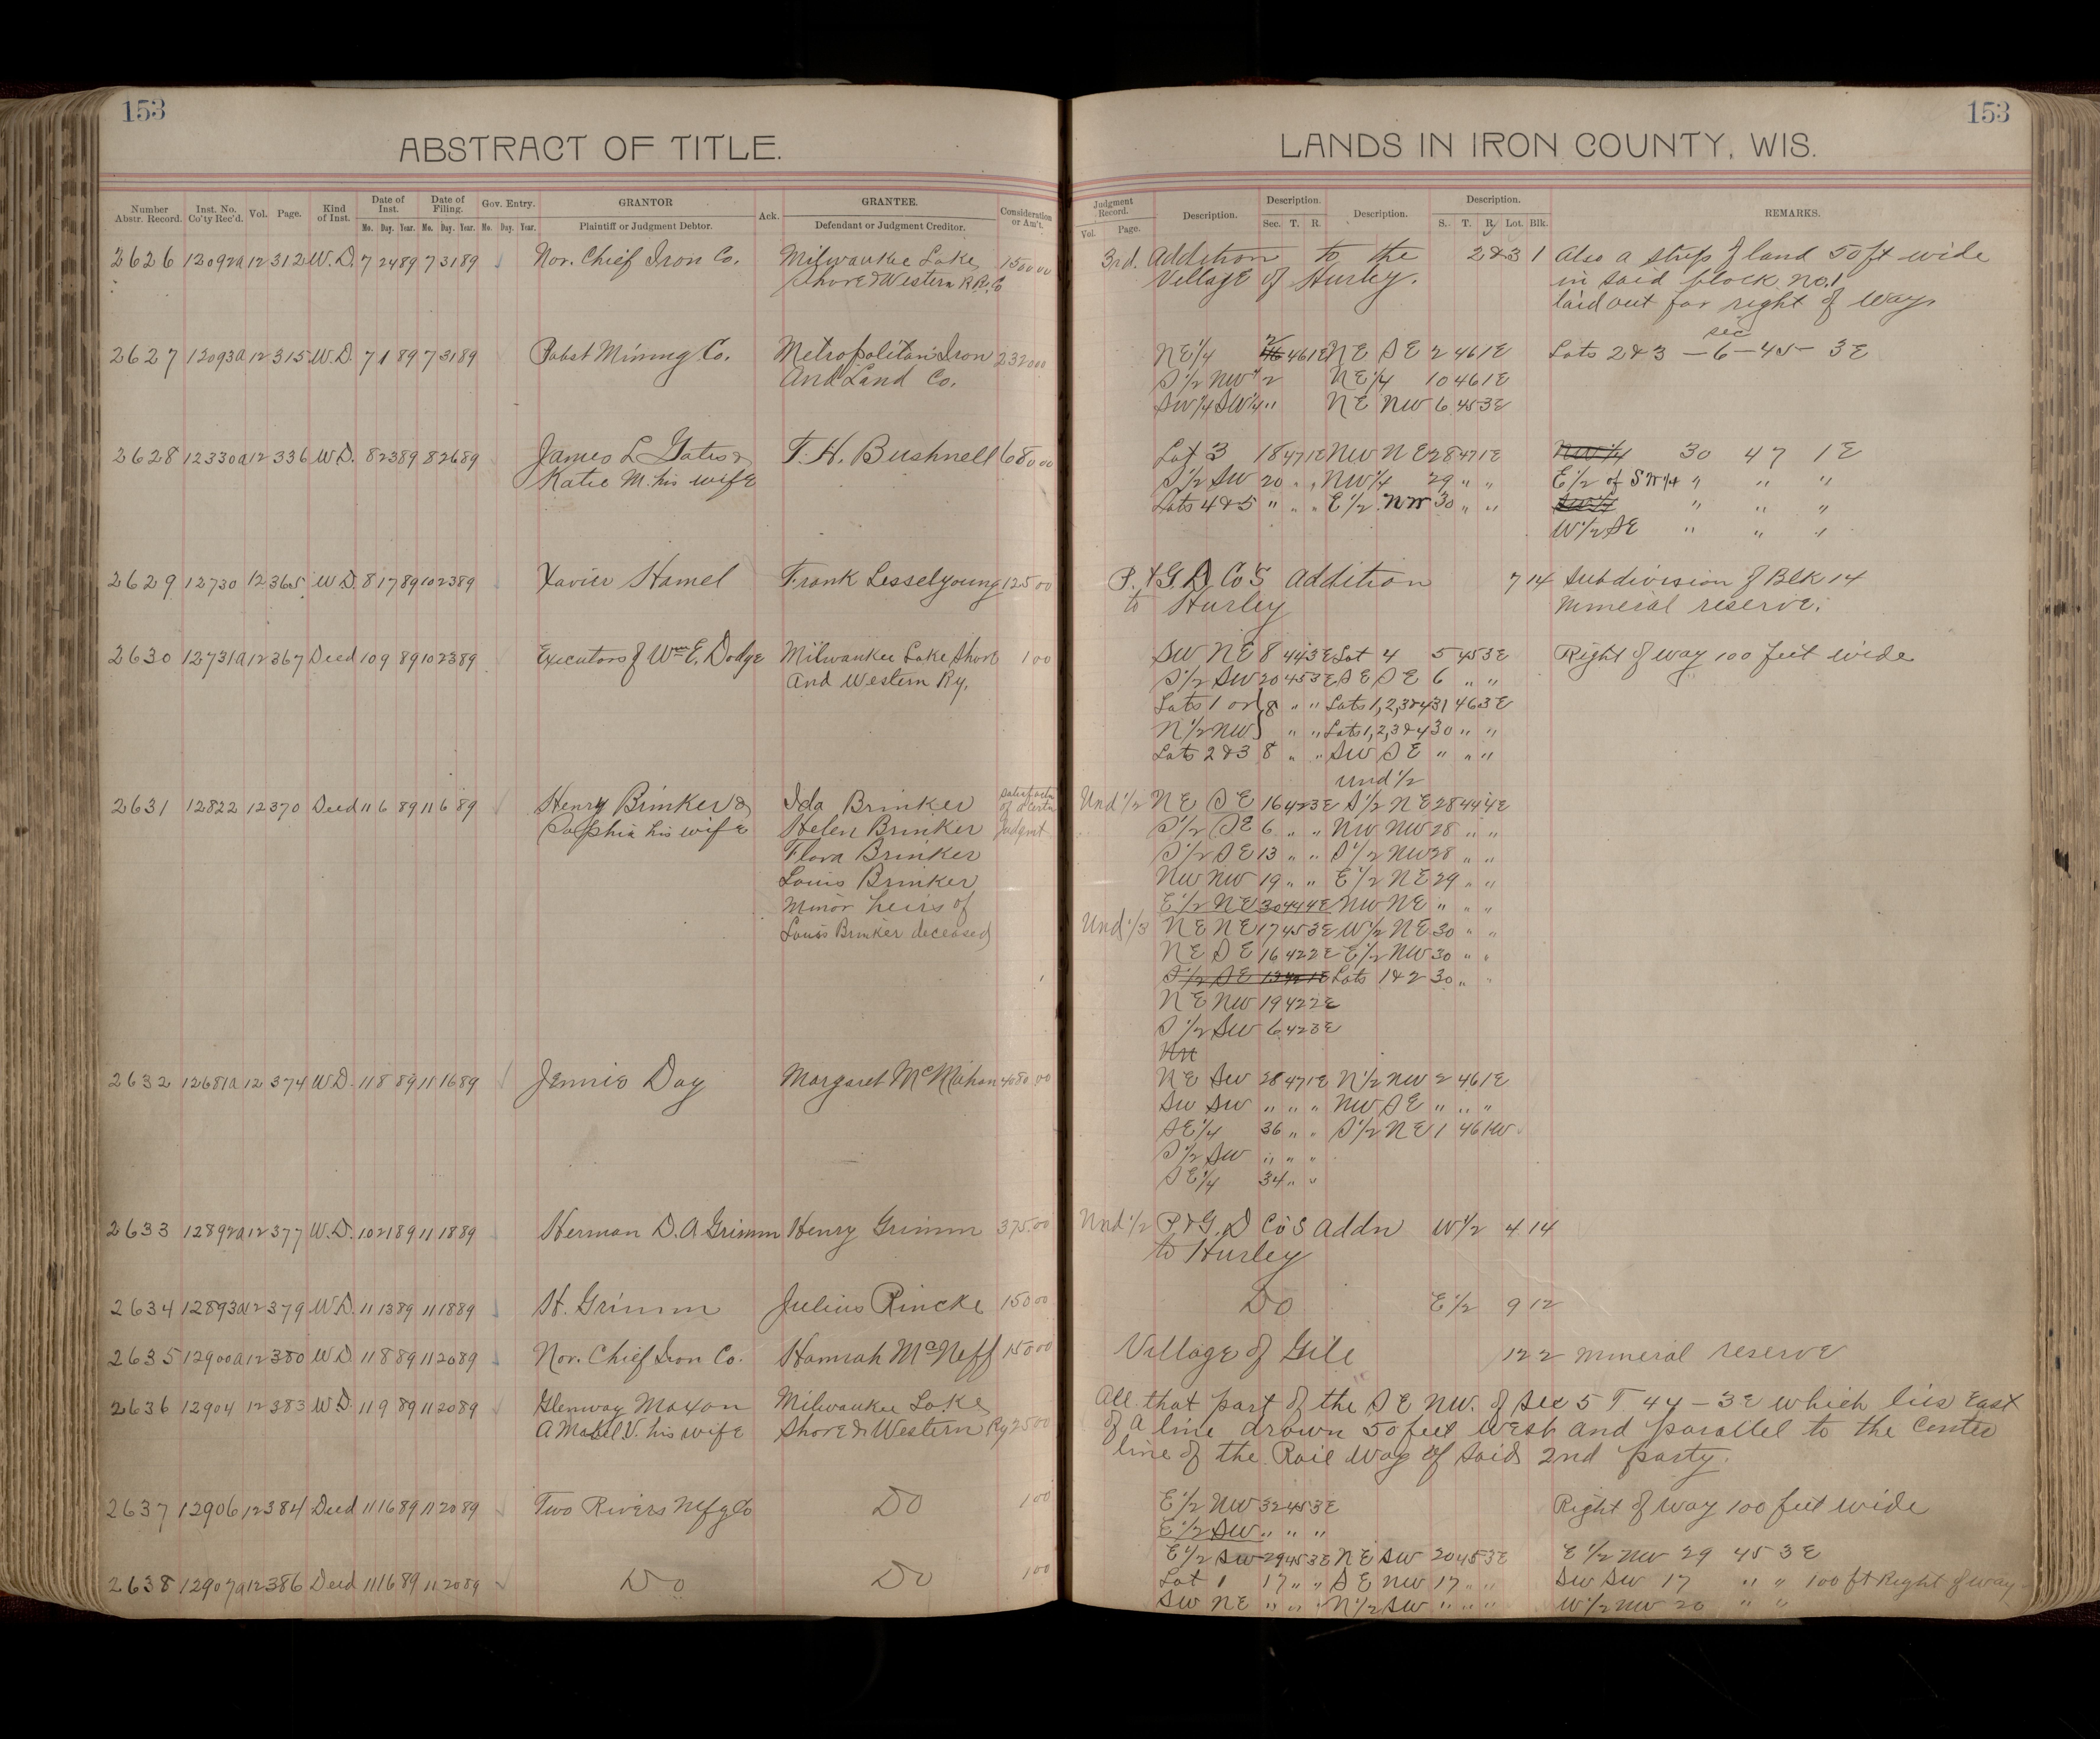 153
ABSTRACT OF TITLE.
Number Abstr. Record. Inst. No. Co'ty Rec'd. Vol. Page. Kind of Inst. Date of Inst. Date of Filing. Gov. Entry. GRANTOR Ack. GRANTEE. Consideration or Am't.
Mo. Day. Year. Mo. Day. Year. Mo. Day. Year. Plaintiff or Judgment Debtor. Defendant or Judgment Creditor.
2626 12092a 12 312 W.D. 7 24 89 7 31 89 Nor. Chief Iron Co. Milwaukee Lake 1500 00
Shore & Western R.R. Co
2627 12093a 12 315 W.D. 7 1 89 7 31 89 Pabst Mining Co. Metropolitan Iron 232000
And Land Co.
2628 12330a 12 336 W.D. 8 23 89 8 26 89 James L Gates & T. H. Bushnell 680 00
Katie M. his wife
2629 12730 12 365 W.D. 8 17 89 10 23 89 Xavier Hamel Frank Lesselyoung 125 00
2630 12731a 12 367 Deed 10 9 89 10 23 89 Executors of Wm E. Dodge Milwaukee Lake Shore 1 00
And Western Ry.
2631 12822 12 370 Deed 11 6 89 11 6 89 Henry Brinker & Ida Brinker
Sophia his wife Helen Brinker
Flora Brinker
Louis Brinker
Minor heirs of
Louis Brinker deceased
2632 12681a 12 374 W.D. 11 8 89 11 16 89 Jennie Day Margaret McMahon 4080 00
2633 12892a 12 377 W.D. 10 21 89 11 18 89 Herman D. A Grimm Henry Grimm 375.00
2634 12893a 12 379 W.D. 11 13 89 11 18 89 H. Grimm Julius Rincke 150 00
2635 12900a 12 380 W.D. 11 8 89 11 20 89 Nor. Chief Iron Co. Hannah McNeff 150 00
2636 12904 12 383 W.D. 11 9 89 11 20 89 Glenway Maxon Milwaukee Lake
& Mabel V. his wife Shore & Western Ry 25 00
2637 12906 12 384 Deed 11 16 89 11 20 89 Two Rivers Mfg Co Do 1 00
2638 12907a 12 386 Deed 11 16 89 11 20 89 Do Do 1 00
153
LANDS IN IRON COUNTY, WIS.
Judgment Record. Description. Description. Description. Description. REMARKS.
Vol. Page. Sec. T. R. S. T. R. Lot. Blk.
3rd. Addition to the 2&3 1 Also a strip of land 50 ft wide
Village of Hurley. in said block no. 1
laid out for right of way
sec
NE 1/4 2 46 1E NE SE 2 46 1E Lots 2&3 — 6 — 45 — 3E
S 1/2 NW 1/4 2 NE 1/4 10 46 1E
SW 1/4 SW 1/4 " NE NW 6 45 3E
Lot 3 18 47 1E NW NE 28 47 1E NW 1/4 30 47 1E
S 1/2 SW 20 " " NW 1/4 29 " " E 1/2 of SW 1/4 " " "
Lots 4&5 " " " E 1/2 NW 30 " " " " "
W 1/2 SE " " "
P. & G. D Co's Addition 7 14 Subdivision of Blk 14
to Hurley mineral reserve.
SW NE 8 44 3E Lot 4 5 45 3E Right of way 100 feet wide
S 1/2 SW 20 45 3E SE SE 6 " "
Lots 1 or 8 " " Lots 1,2,3&4 31 46 3E
N 1/2 NW " " Lots 1,2,3&4 30 " "
Lots 2&3 8 " " SW SE " " "
und 1/2
Und 1/2 NE SE 16 42 3E S 1/2 NE 28 44 4E
S 1/2 SE 6 " " NW NW 28 " "
S 1/2 SE 13 " " S 1/2 NW 28 " "
NW NW 19 " " E 1/2 NE 29 " "
E 1/2 NE 30 44 4E NW NE " " "
Und 1/3 NE NE 17 45 3E W 1/2 NE 30 " "
NE SE 16 42 2E E 1/2 NW 30 " "
S 1/2 SE 13 42 1E Lots 1&2 30 " "
NE NW 19 42 2E
S 1/2 SW 6 42 3E
NE SW 28 47 1E N 1/2 NW 2 46 1E
SW SW " " " NW SE " " "
SE 1/4 36 " " S 1/2 NE 1 46 1W
S 1/2 SW " " "
SE 1/4 34 " "
Und 1/2 P & G. D Co's Addn W 1/2 4 14
to Hurley
Do E 1/2 9 12
Village of Gile 12 2 mineral reserve
All that part of the SE NW. of Sec 5 T. 44 – 3E which lies East
of a line drawn 50 feet West and parallel to the center
line of the Rail Way of Said 2nd party.
E 1/2 NW 32 45 3E Right of way 100 feet wide
E 1/2 SW " " "
E 1/2 SW 29 45 3E NE SW 20 45 3E E 1/2 NW 29 45 3E
Lot 1 17 " " SE NW 17 " " SW SW 17 " " 100 ft Right of way
SW NE " " " N 1/2 SW " " " W 1/2 NW 20 " "